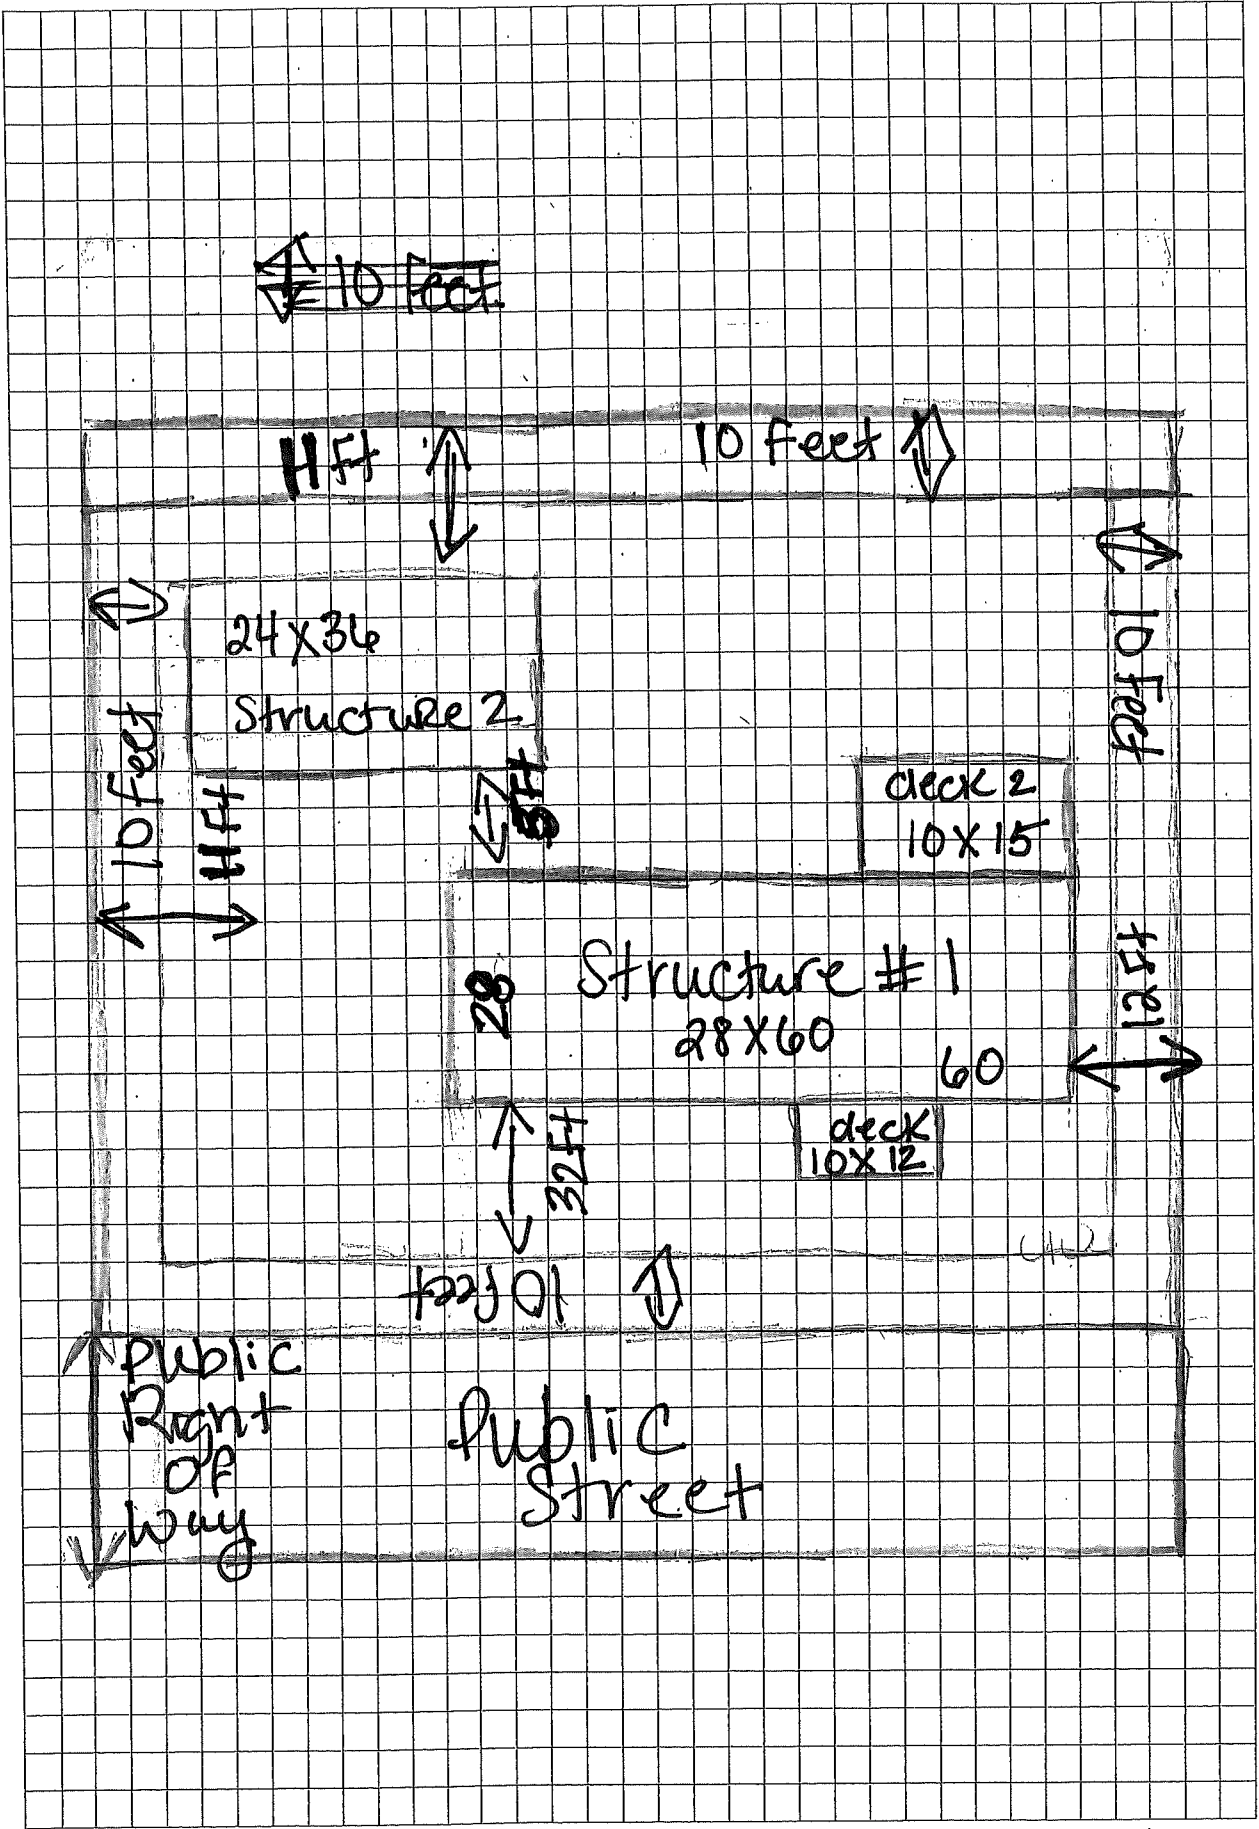 10 Feet
11 Ft
10 Feet
24X36
Structure 2
10 Feet
10 Feet
11 Ft
Ft
deck 2
10 X 15
Structure # 1
28X60
28
60
12 Ft
deck
10X12
32 Ft
10 Feet
Public
Right
Of
Way
Public
Street